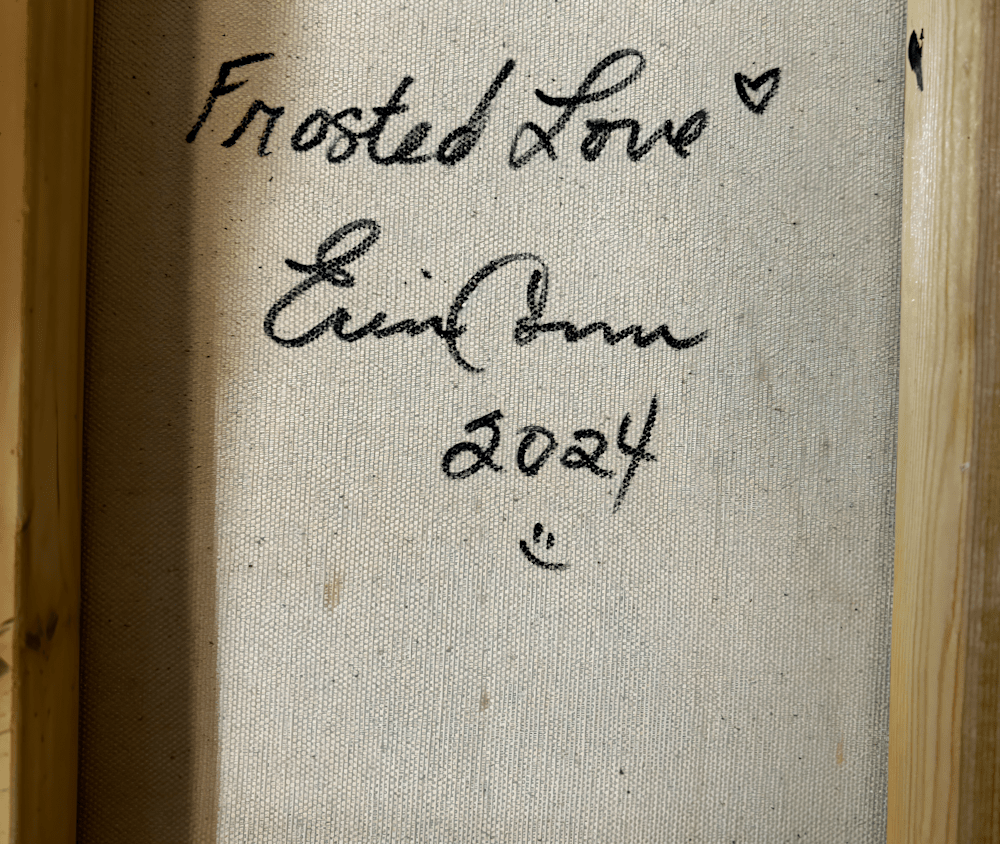 Frosted Love ♡
Erin Conn
2024